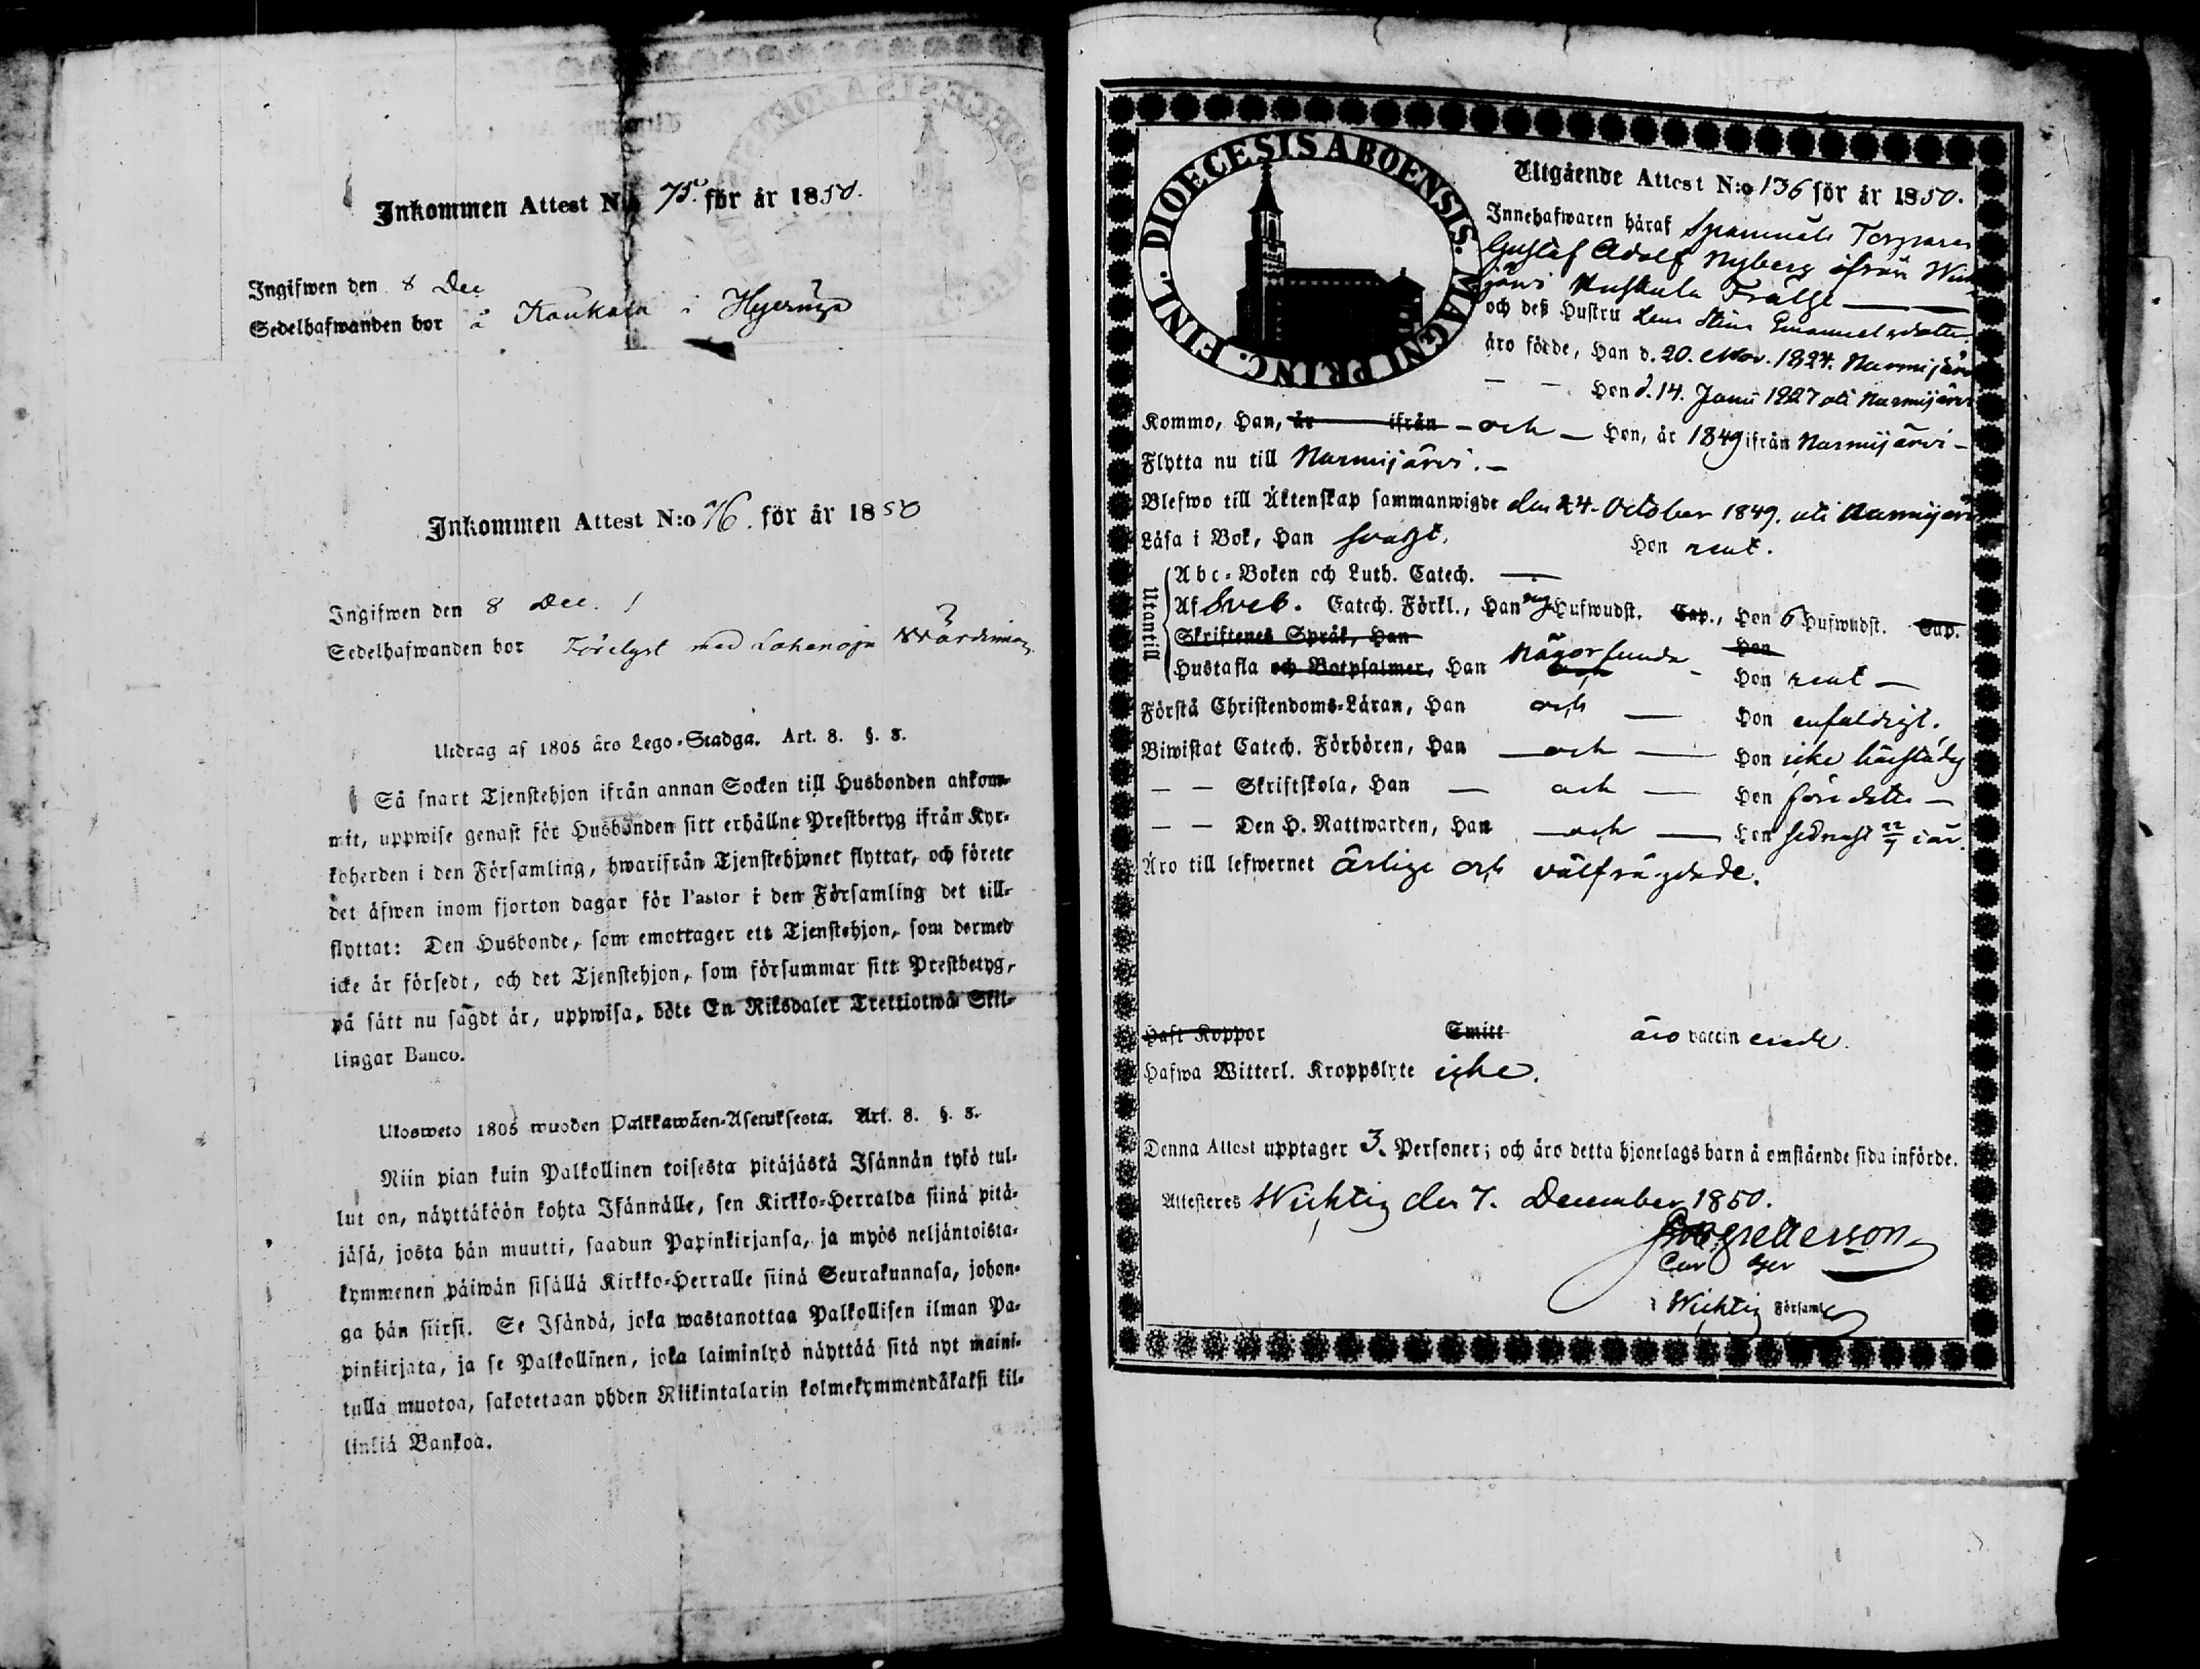 Inkommen Attest N:o 75. för år 1850.
Ingifwen den 8 Dec
Sedelhafwanden bor å Kaukola i Hyeringa
Inkommen Attest N:o 76. för år 1850
Ingifwen den 8 Dec.
Sedelhafwanden bor med Lahenoja Wärdinna
Utdrag af 1805 års Lego-Stadga. Art. 8. §. 8.
Så snart Tjenstehjon ifrån annan Socken till Husbonden ankom-
mit, uppwise genast för Husbonden sitt erhållne Prestbetyg ifrån Kyr-
koherden i den Församling, hwarifrån Tjenstehjonet flyttat, och förete
det äfwen inom fjorton dagar för Pastor i den Församling det till-
flyttat: Den Husbonde, som emottager ett Tjenstehjon, som dermed
icke är försedt, och det Tjenstehjon, som försummar sitt Prestbetyg,
på sätt nu sagdt är, uppwisa, böte En Riksdaler Trettiotwå Skil-
lingar Banco.
Ulosweto 1805 wuoden Palkkawäen-Asetuksesta. Art. 8. §. 8.
Niin pian kuin Palkollinen toisesta pitäjästä Isännän tykö tul-
lut on, näyttäköön kohta Isännälle, sen Kirkko-Herralda siinä pitä-
jäsä, josta hän muutti, saadun Papinkirjansa, ja myös neljäntoista-
kymmenen päiwän sisällä Kirkko-Herralle siinä Seurakunnasa, johon-
ga hän siirsi. Se Isändä, joka wastanottaa Palkollisen ilman Pa-
pinkirjata, ja se Palkollinen, joka laiminlyö näyttää sitä nyt maini-
tulla muotoa, sakotetaan yhden Riikintalarin kolmekymmendäkaksi kil-
linkiä Bankoa.
DIOECESIS ABOENSIS. MAGNI PRINC. FINL.
Utgående Attest N:o 136 för år 1850.
Innehafwaren häraf Spannuils Torparen
Gustaf Adolf Nyberg ifrån Wich
järvi Kuskula Frälse
och deß Hustru Lena Stina Emanuelsdotter
äro födde, Han d. 20. Nov. 1824. Nurmijärvi
— — Hon d. 14. Junii 1827 uti Nurmijärvi
Kommo, Han, år ifrån – och – Hon, år 1849 ifrån Nurmijärvi –
Flytta nu till Nurmijärvi. –
Blefwo till Äktenskap sammanwigde den 24. October 1849. uti Nurmijärvi
Läsa i Bok, Han svagt, Hon rent.
Utantill
Abc-Boken och Luth. Catech. —
Af Sveb. Catech. Förkl., Han Hufwudst. Cap., Hon 6 Hufwudst. Cap.
Skriftenes Språk, Han Hon
Hustafla och Botpsalmer, Han någorlunda – Hon rent –
Förstå Christendoms-Läran, Han och — Hon enfaldigt.
Biwistat Catech. Förhören, Han — och — Hon icke härstädes
— — Skriftskola, Han — och — Hon före detta —
— — Den H. Nattwarden, Han — och — Hon sednast 22/7 i år.
Äro till lefwernet ärlige och välfrägdade.
Haft Koppor Smitt äro vaccinerade.
Hafwa Witterl. Kroppslyte icke.
Denna Attest upptager 3. Personer; och äro detta hjonelags barn å omstående sida införde.
Attesteres Wichtis den 7. December 1850.
Cur
i Wichtis Församl.